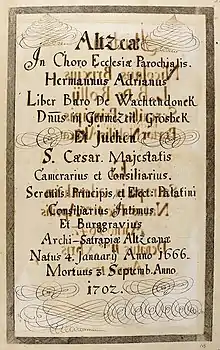 Altzeæ
In Choro Ecclesiæ Parochialis.
Hermannus Adrianus
Liber Baro De Wachtendonck
Dnus in Germezeil Grosbek
Et Juchen
S. Cæsar. Majestatis
Camerarius et Consiliarius.
Sereniss. Principis et Elect. Palatini
Consiliarius Intimus
Et Burggravius
Archi-Satrapiæ Altzeanæ
Natus 4. January Anno 1666.
Mortuus 21 Septemb. Anno
1702.